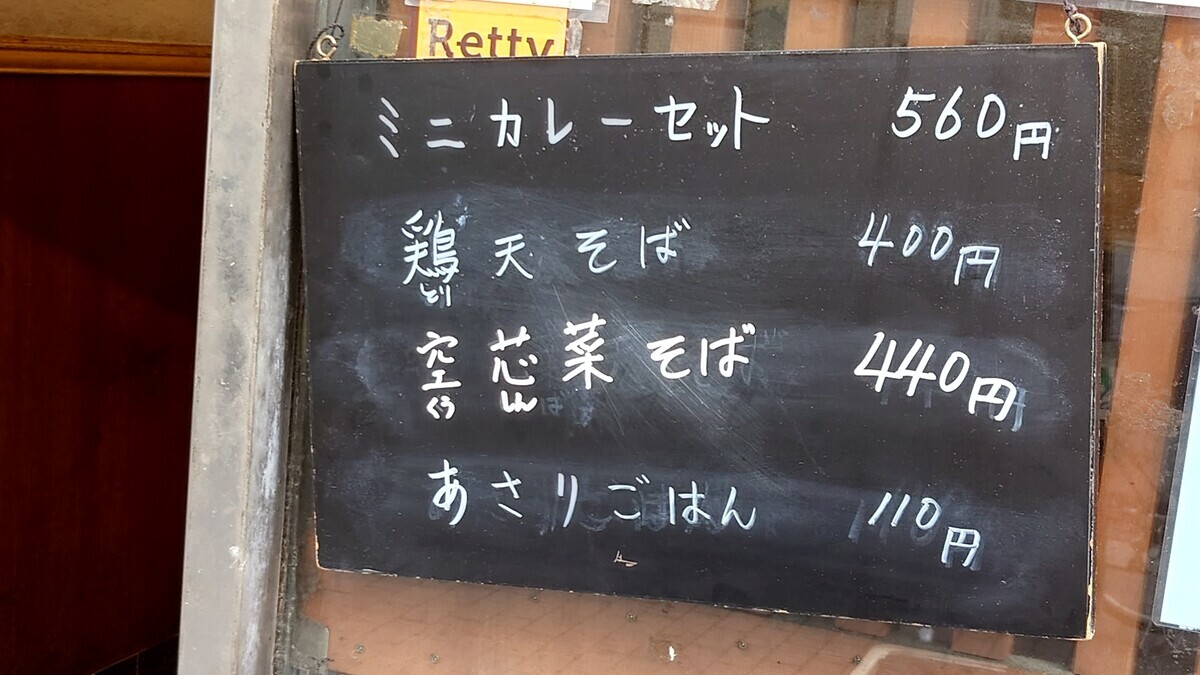 Retty
ミニカレーセット 560円
鶏天そば 400円
とり
空芯菜そば 440円
くうしん
あさりごはん 110円